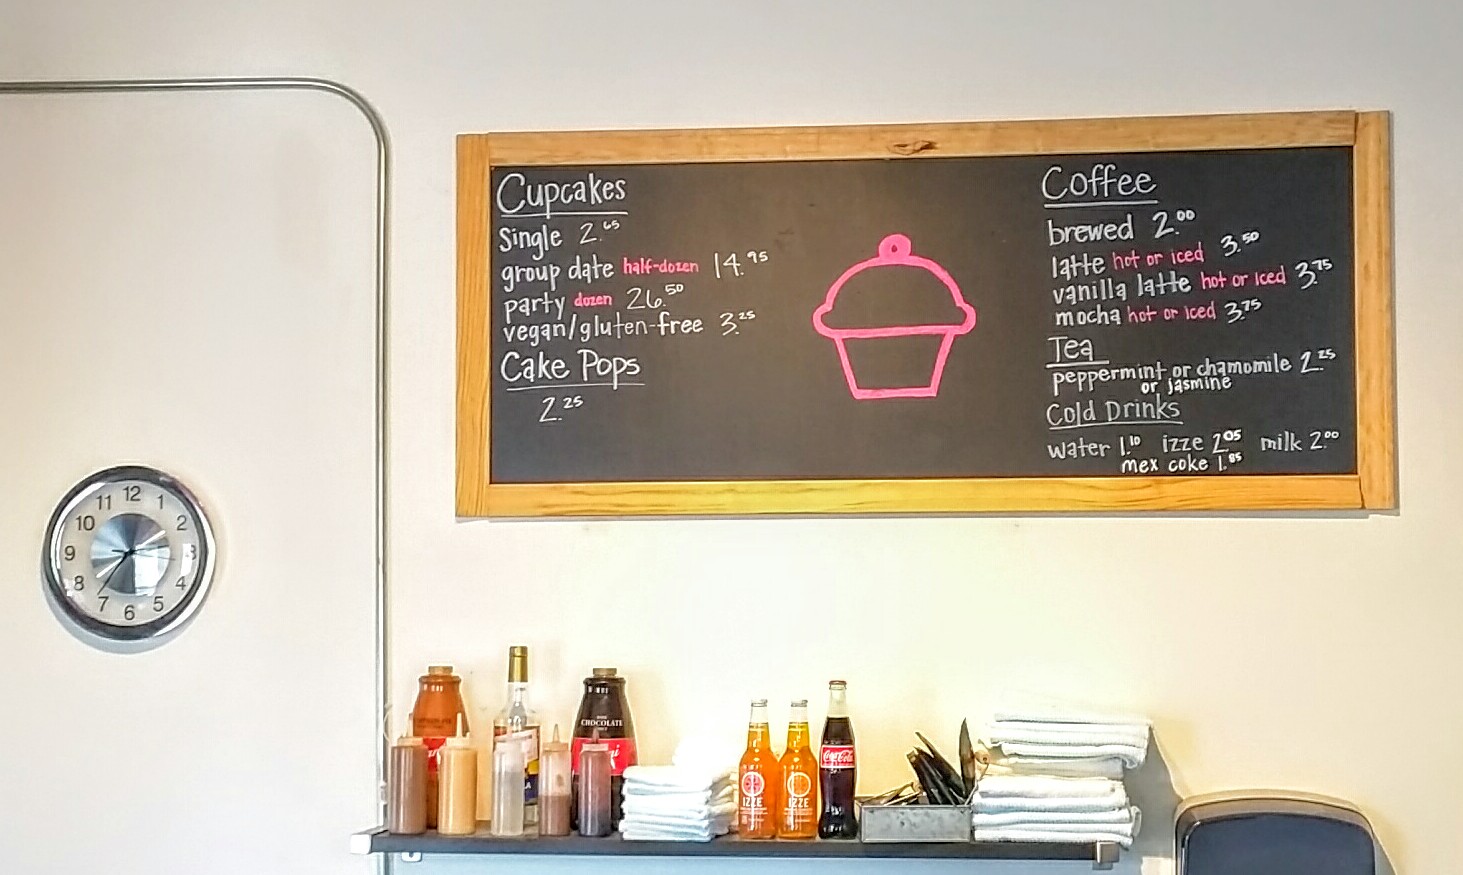 Cupcakes
Single 2.65
group date half-dozen 14.95
party dozen 26.50
vegan/gluten-free 3.25
Cake Pops
2.25
Coffee
brewed 2.00
latte hot or iced 3.50
vanilla latte hot or iced 3.75
mocha hot or iced 3.75
Tea
peppermint or chamomile 2.25
or jasmine
Cold Drinks
water 1.10 izze 2.05 milk 2.00
mex coke 1.85
12
11 1
10 2
9 3
8 4
7 5
6
CHOCOLATE
IZZE
IZZE
Coca-Cola